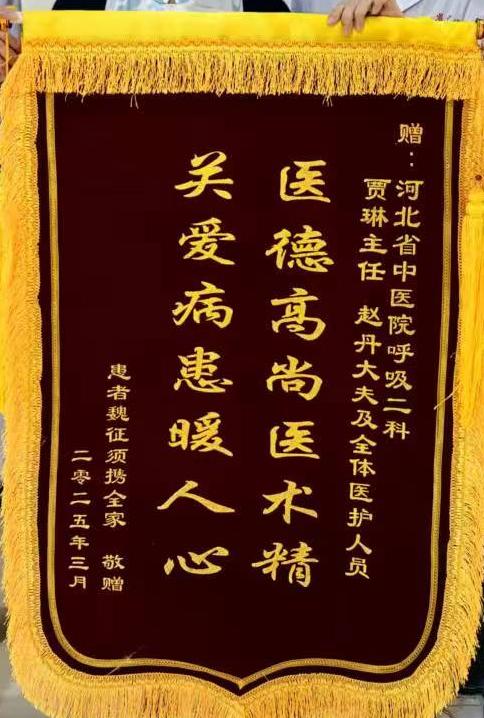 赠：河北省中医院呼吸二科
贾琳主任 赵丹大夫及全体医护人员
医德高尚医术精
关爱病患暖人心
患者魏征须携全家 敬赠
二零二五年三月